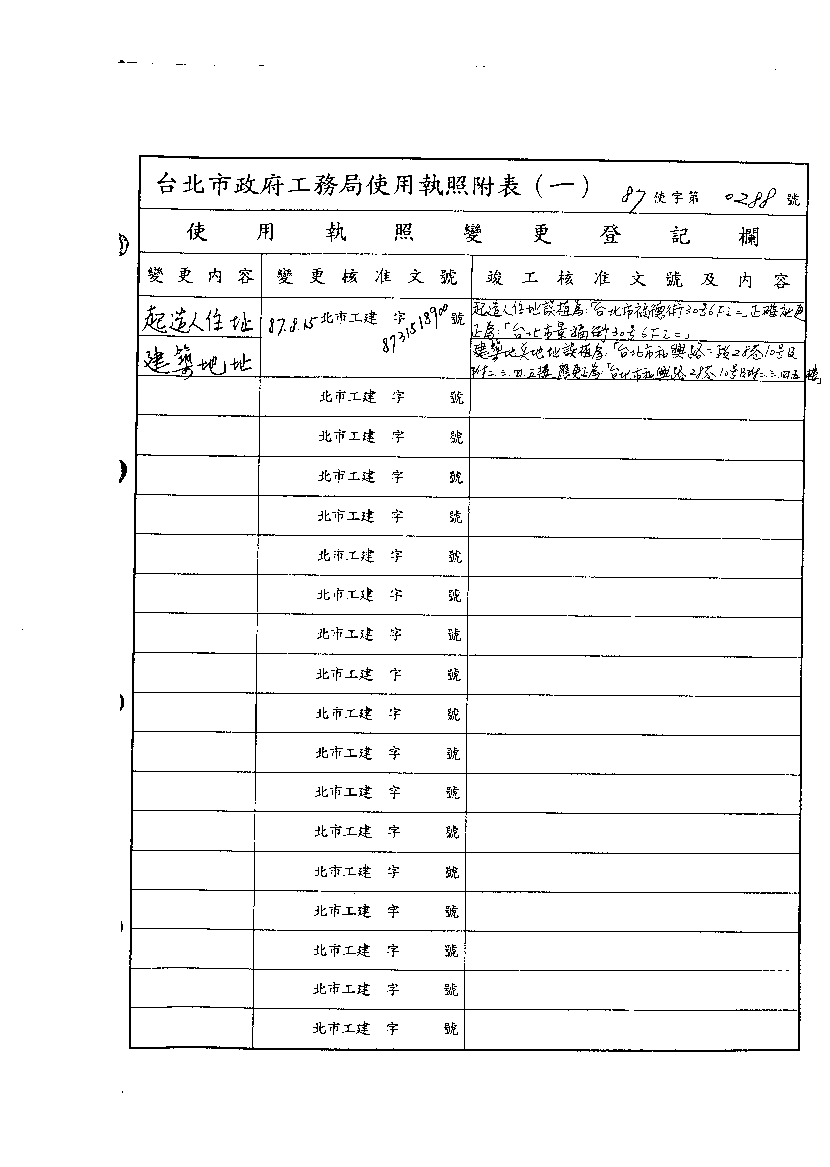 台北市政府工務局使用執照附表(一) 87使字第0288號
使用執照變更登記欄
變更內容 變更核准文號 竣工核准文號及內容
起造人住址 87.8.15北市工建 字8731518900號 起造人住址誤植為:「台北市福德街30號6F之二」正確地更
正為:「台北市景福街30號6F之二」
建築地址 建築地址誤植為:「台北市礼興路一段28巷10号及
附二.三.四.五樓 應更正為:「台北市礼興路28巷10号附二.三.四五樓」
北市工建 字 號
北市工建 字 號
北市工建 字 號
北市工建 字 號
北市工建 字 號
北市工建 字 號
北市工建 字 號
北市工建 字 號
北市工建 字 號
北市工建 字 號
北市工建 字 號
北市工建 字 號
北市工建 字 號
北市工建 字 號
北市工建 字 號
北市工建 字 號
北市工建 字 號